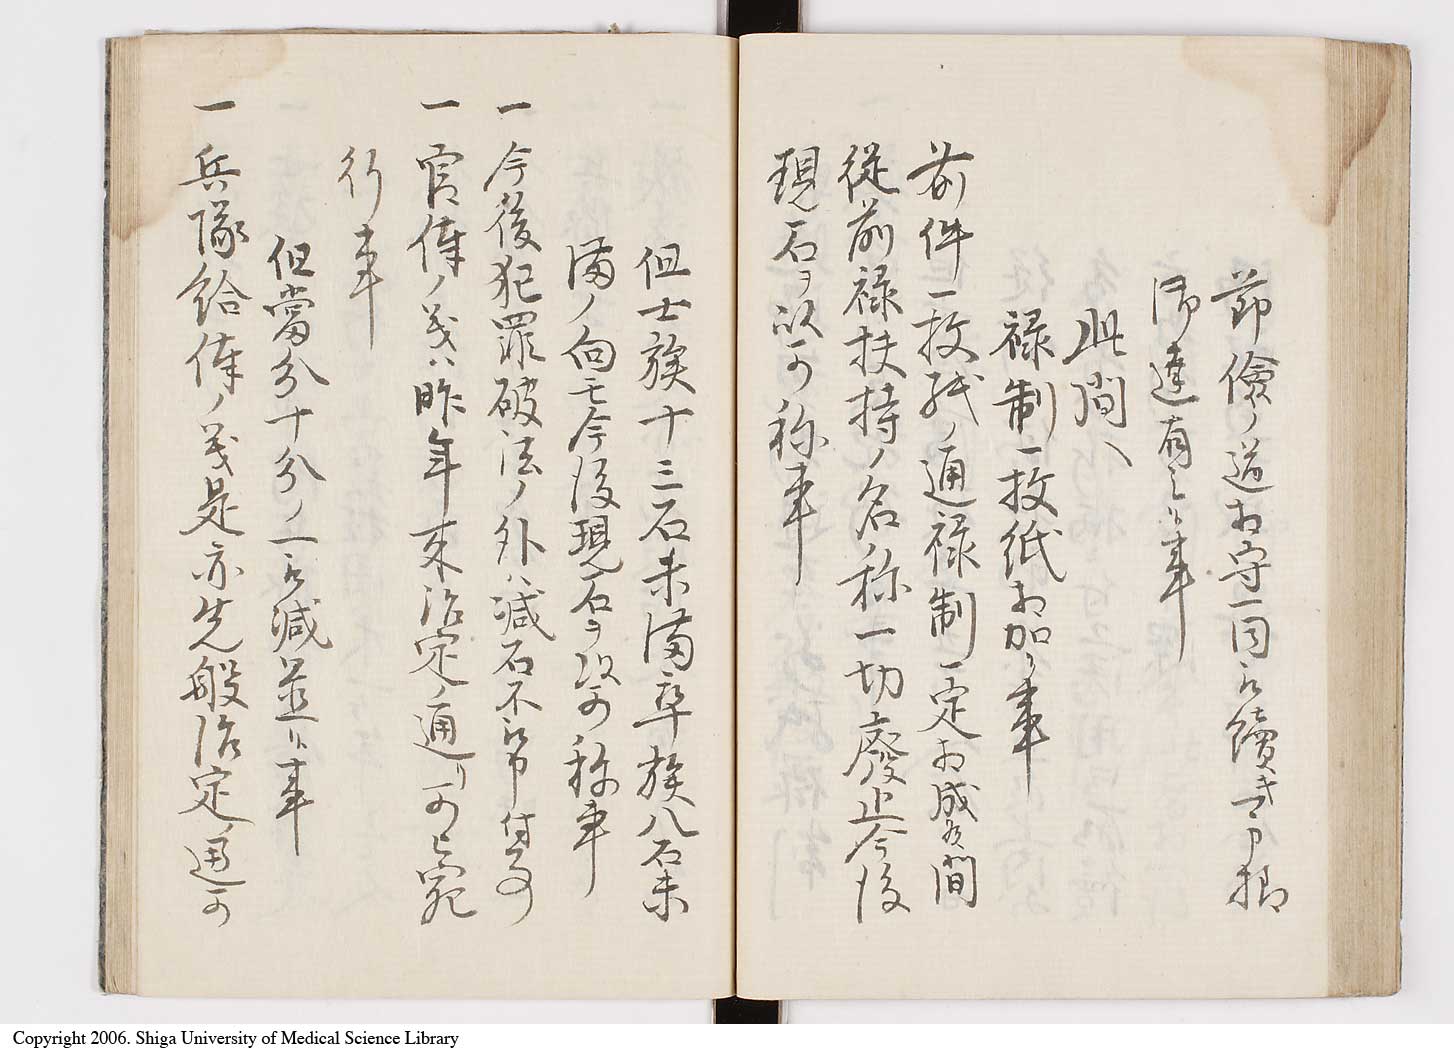 節儉ノ道相守一同ゟ續キ可申様
御達有之候事
此間ヘ
禄制一枚紙相加ヘ事
前件一枚紙ノ通禄制一定相成候間
從前禄扶持ノ名称一切廢止今後
現石ヲ以可称事
但士族十三石未満卒族八石未
満ノ向モ今後現石ヲ以可称事
一 今後犯罪破法ノ外ハ減石不被申付事
一 官俸ノ義ハ昨年来治定ノ通リ可被宛
行事
但當分十分ノ一被減並候事
一 兵隊給俸ノ義是亦先般治定ノ通可
Copyright 2006. Shiga University of Medical Science Library